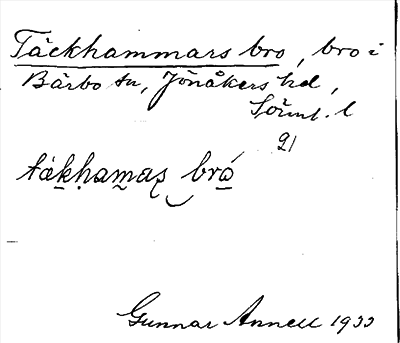 Täckhammars bro, bro i
Bärbo sn, Jönåkers hd,
Sörml. l
91
täkhamas bro
Gunnar Annell 1933